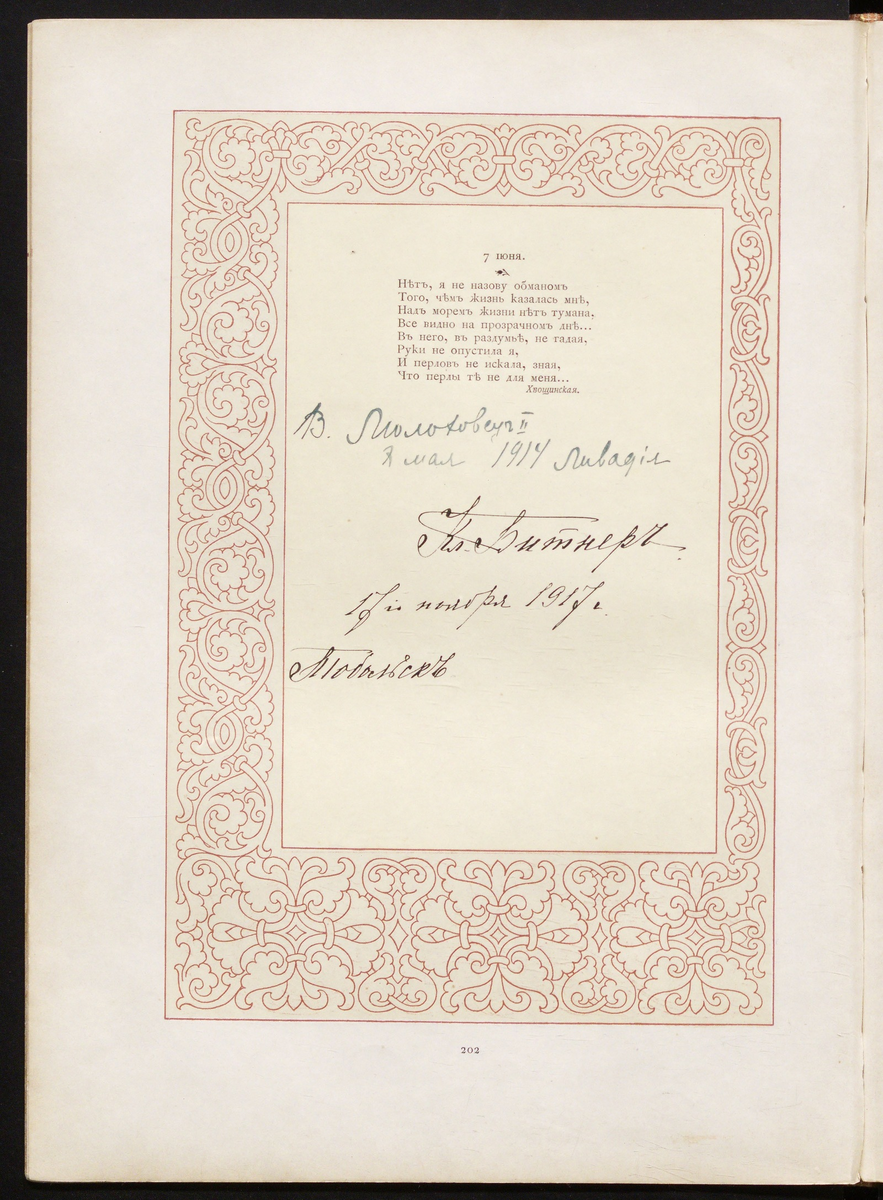 7 іюня.
Нѣтъ, я не назову обманомъ
Того, чѣмъ жизнь казалась мнѣ,
Надъ моремъ жизни нѣтъ тумана,
Все видно на прозрачномъ днѣ...
Въ него, въ раздумьѣ, не гадая,
Руки не опустила я,
И перловъ не искала, зная,
Что перлы тѣ не для меня...
Хвощинская.
В. Молоховецъ II
8 мая 1914 Ливадія
Кл. Битнеръ.
17го ноября 1917 г.
Тобольскъ
202